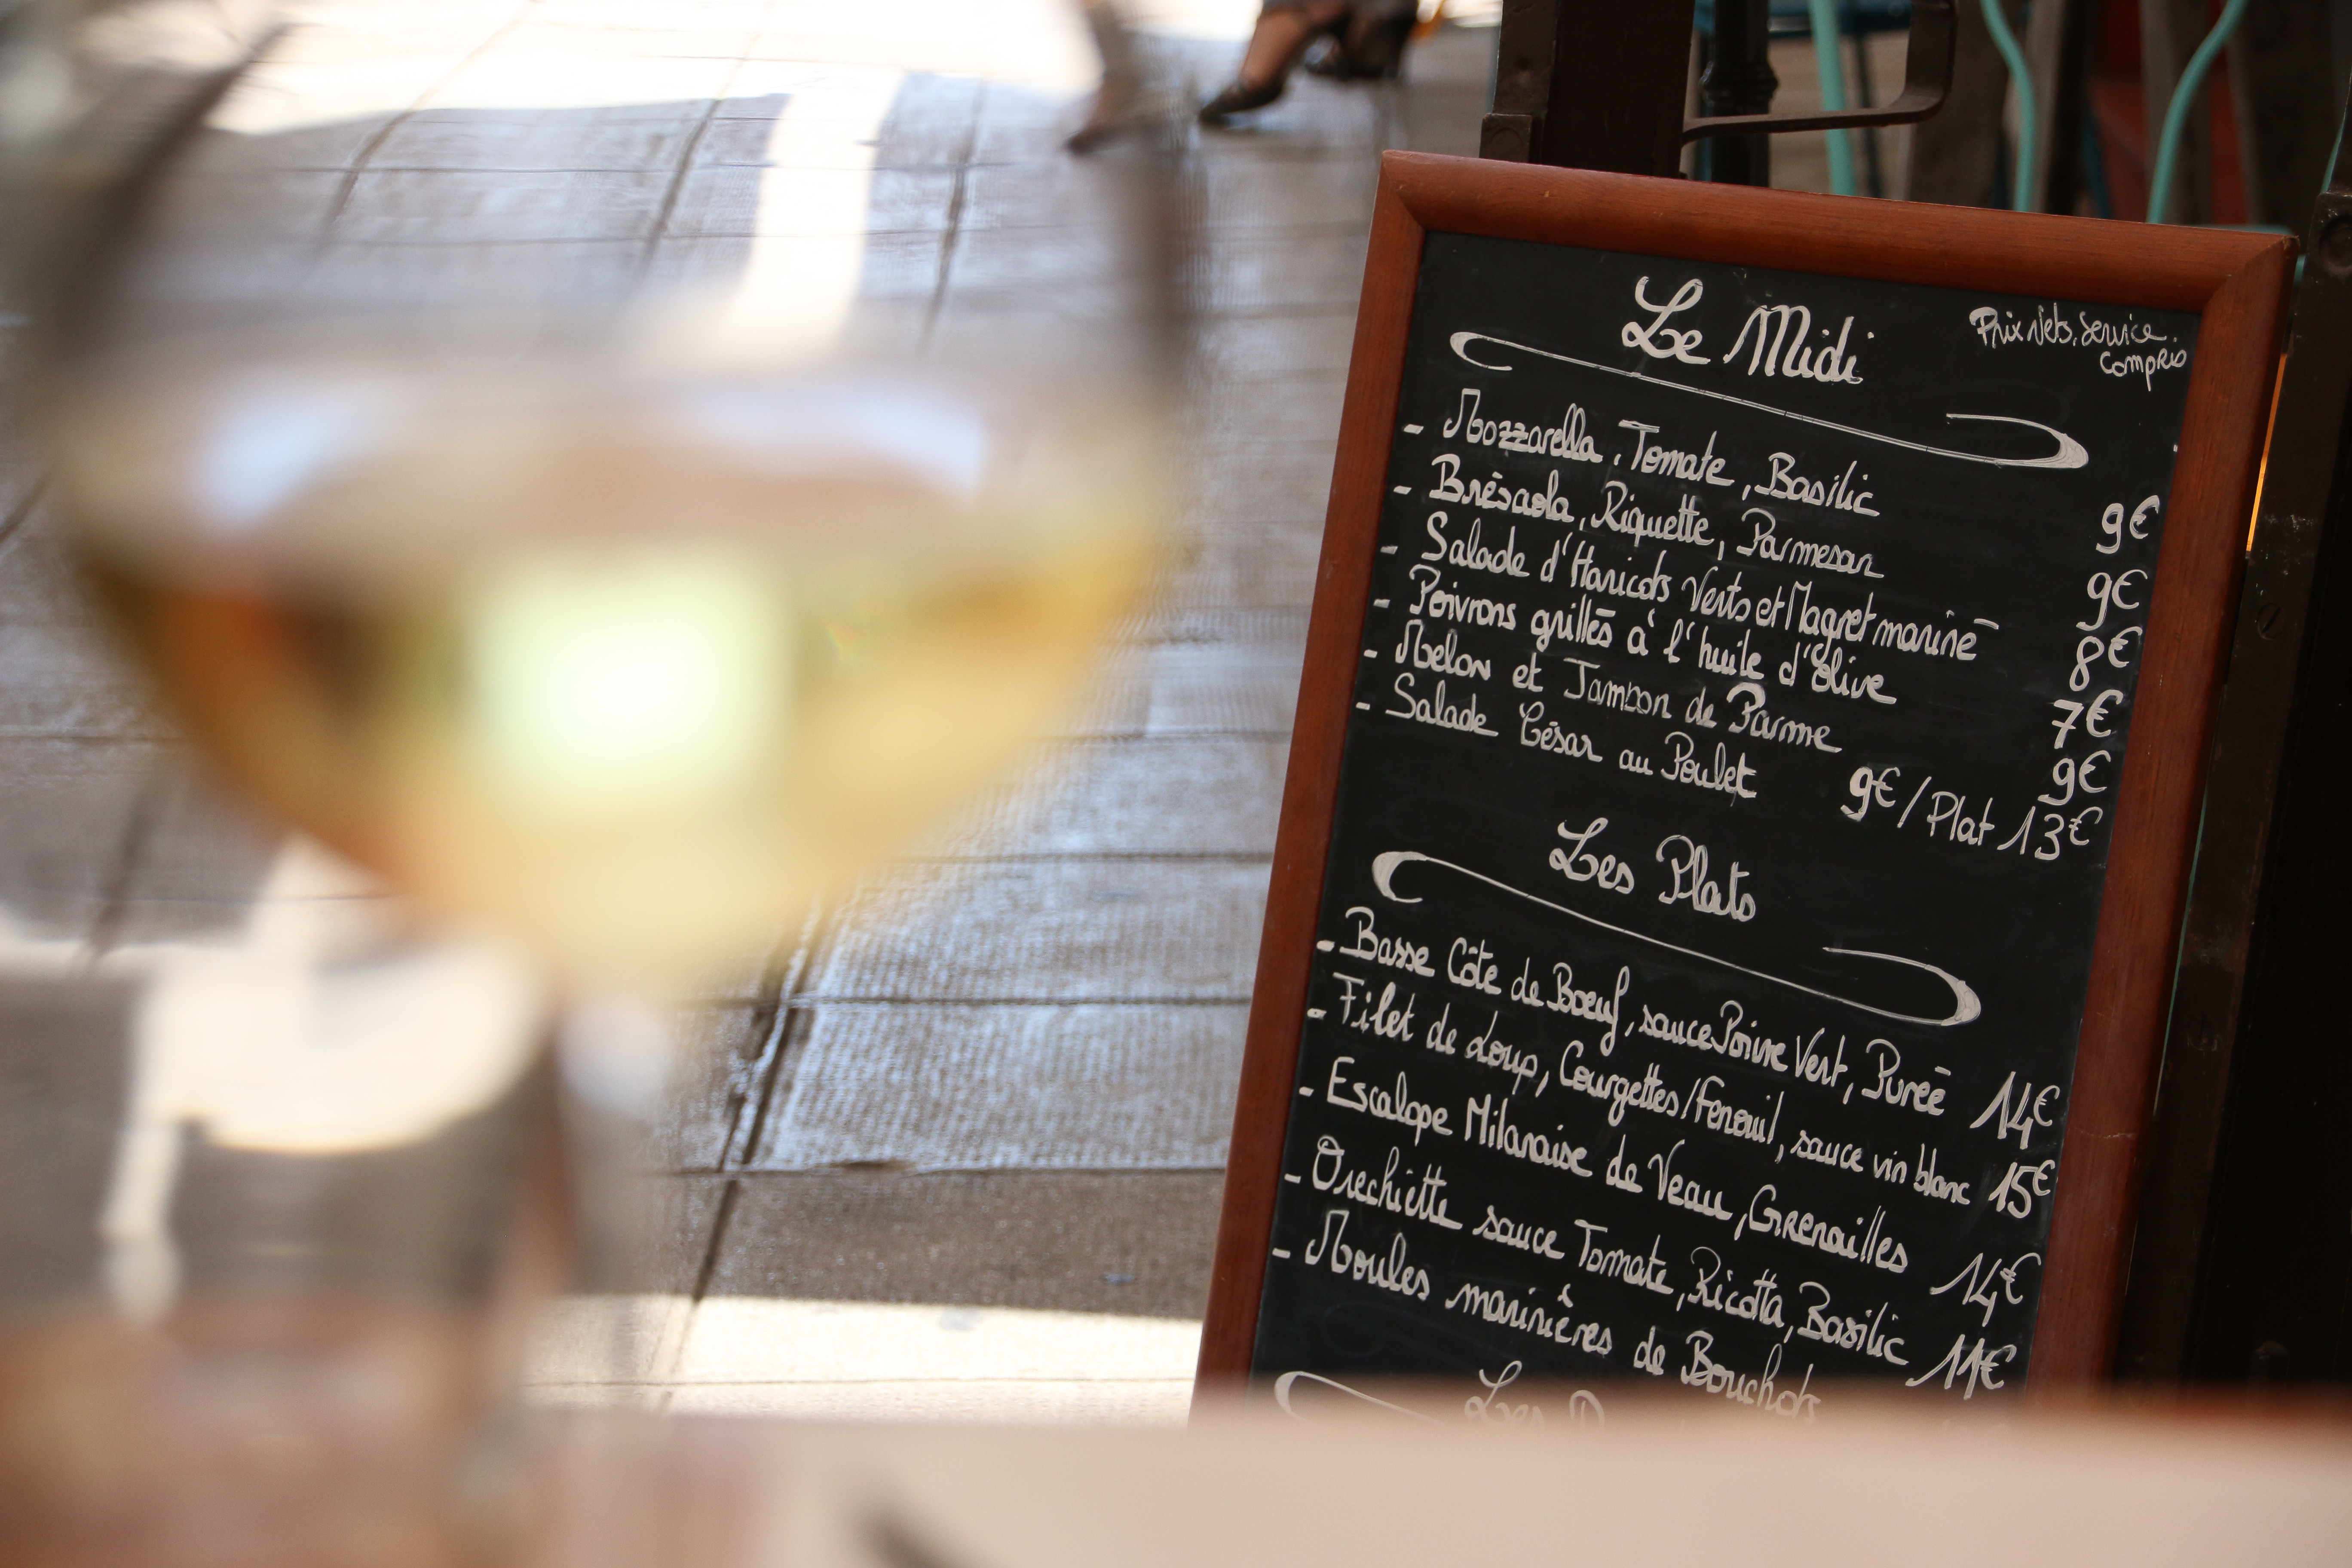 Le Midi
Prix Nets. Service.
Compris
- Mozzarella, Tomate, Basilic 9€
- Brésaola, Riquette, Parmesan 9€
- Salade d'Haricots Verts et Magret mariné 8€
- Poivrons grillés à l'huile d'Olive 7€
- Melon et Jambon de Parme 9€
- Salade César au Poulet 9€ / Plat 13€
Les Plats
- Basse Côte de Boeuf, sauce Poivre Vert, Purée 14€
- Filet de Loup, Courgettes/Fenouil, sauce vin blanc 15€
- Escalope Milanaise de Veau, Grenailles 14€
- Orechiette sauce Tomate, Ricotta, Basilic 11€
- Moules marinières de Bouchots
Les